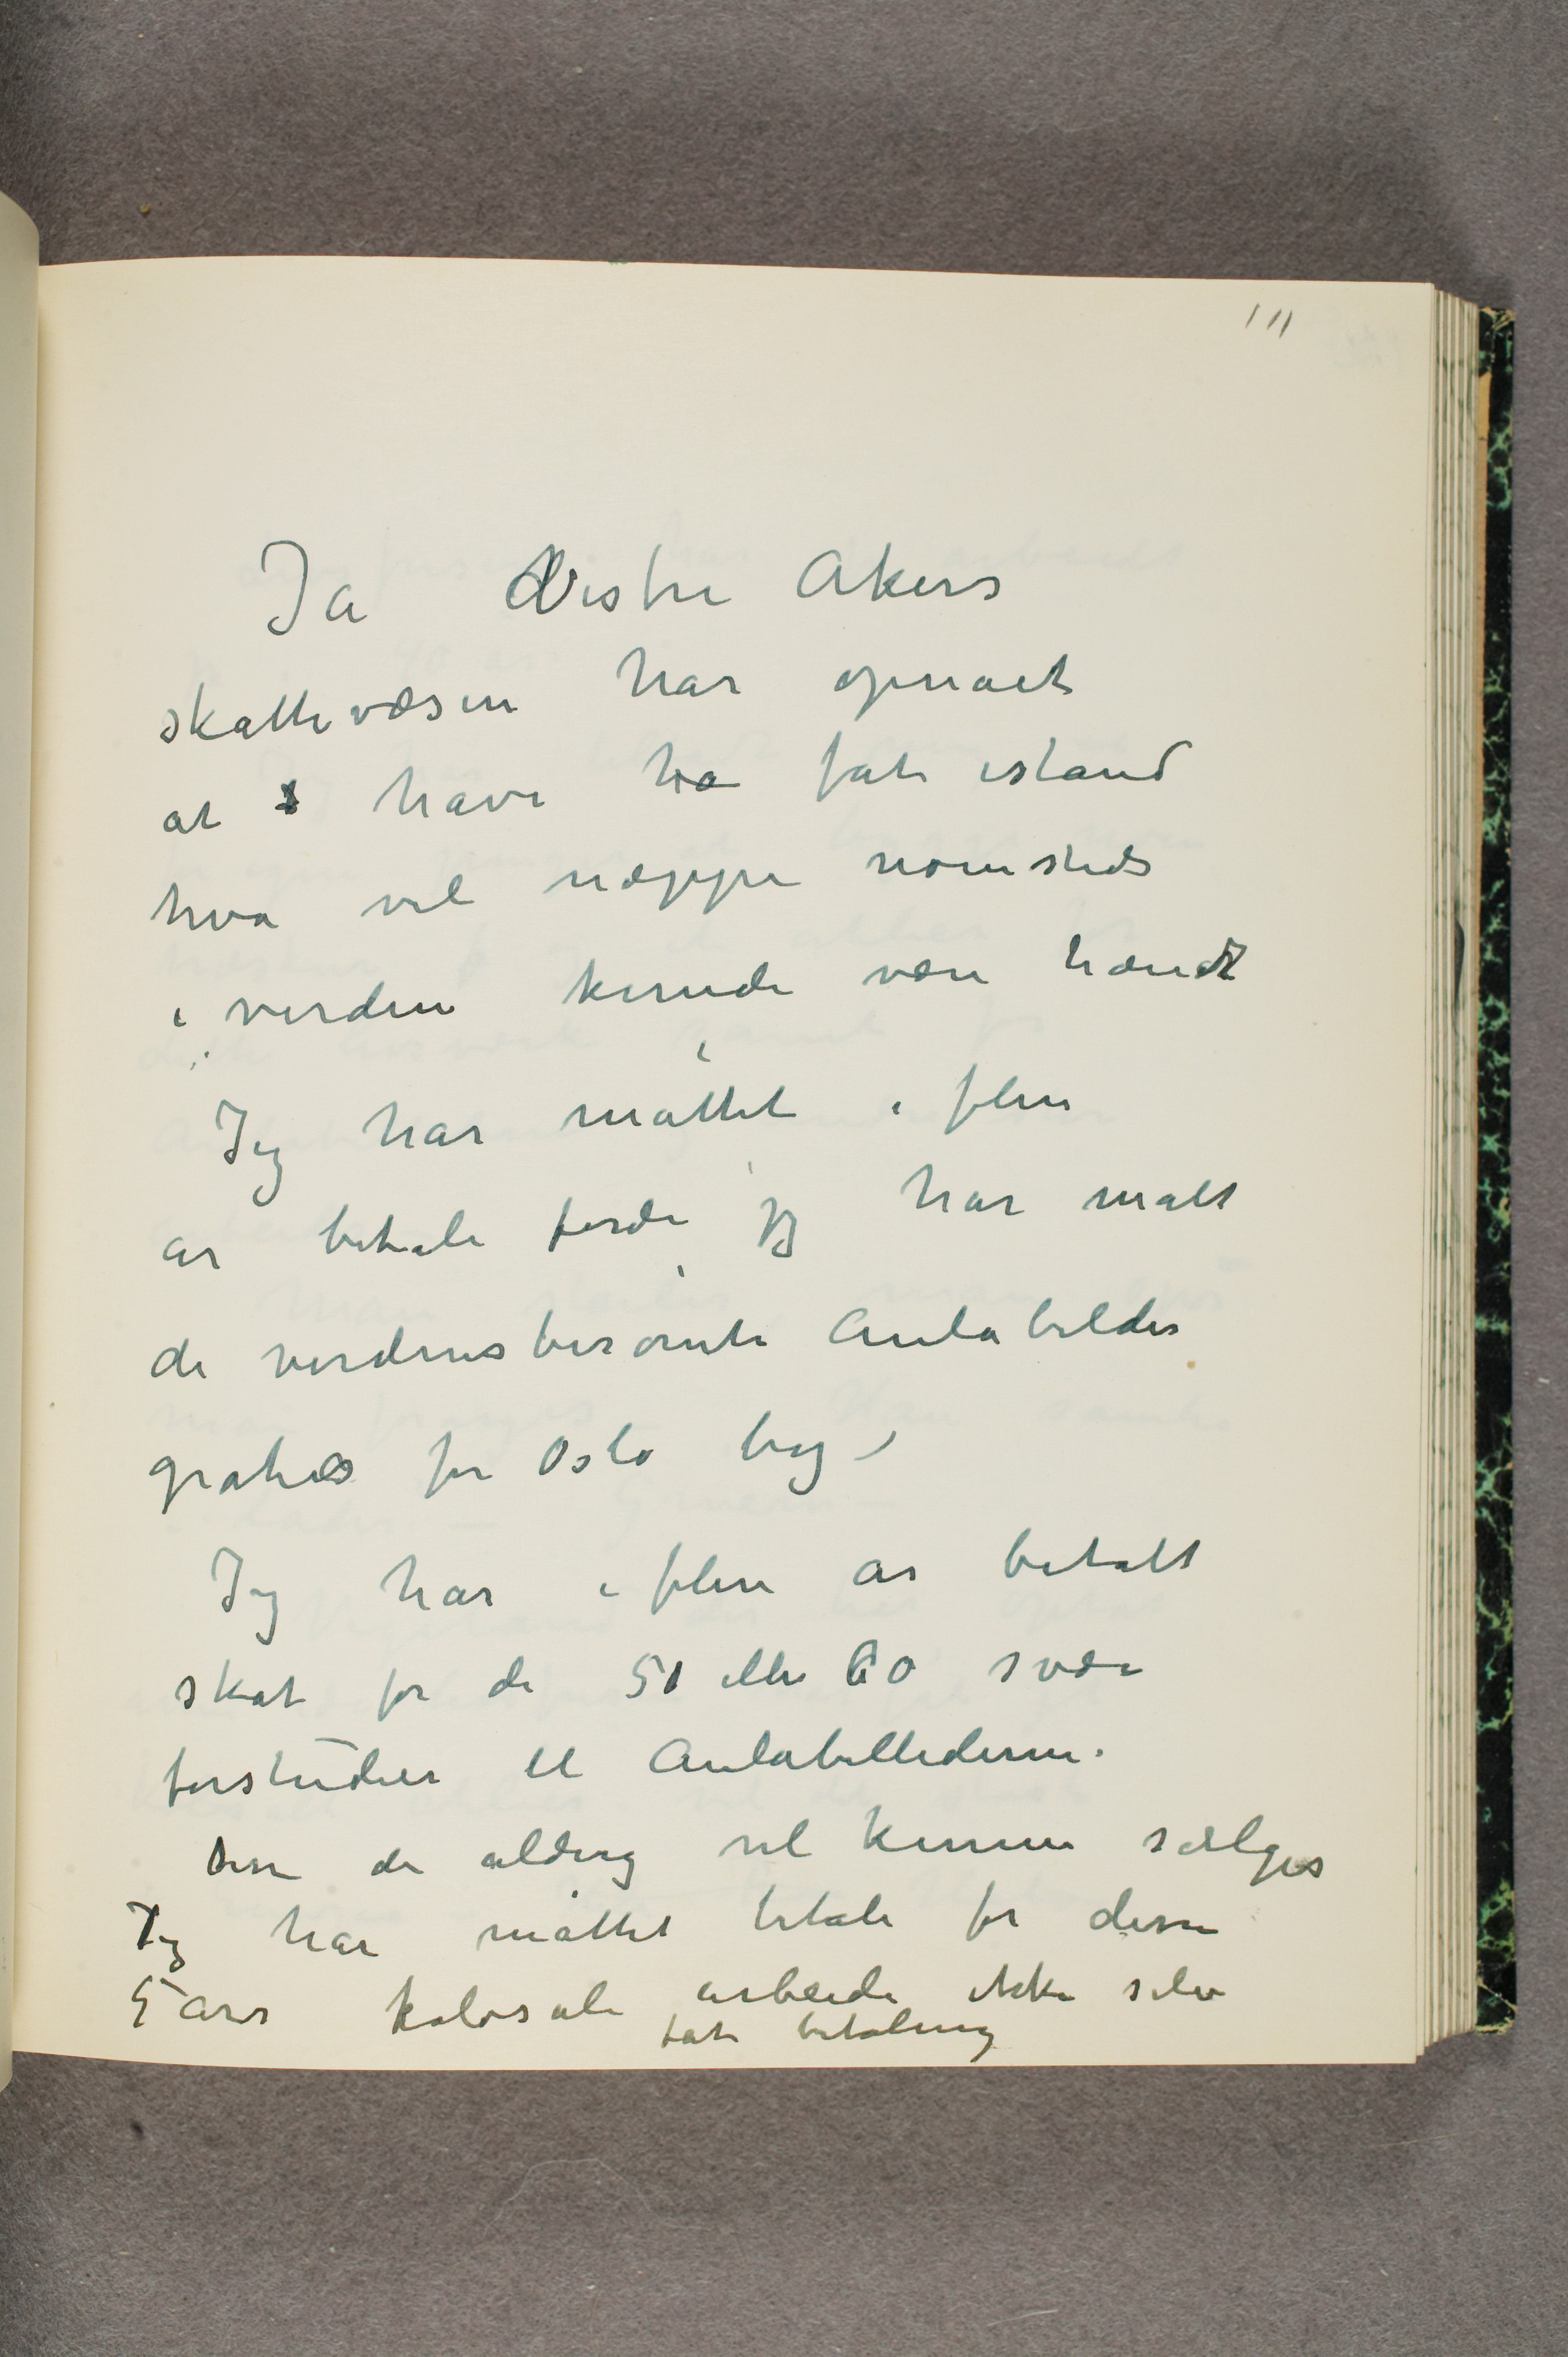 111
Ja Vestre Akers
skattevæsen har opnaaet
at have ha fåt istand
hva vel næppe noensteds
i verden kunde være hændt
Jeg har måttet i flere
år betale fordi jeg har malt
de verdensberømte Aulabilder
graties for Oslo by –
Jeg har i flere år betalt
skat for de 50 eller 60 svære
forstudier til Aulabillederne.
som de aldrig vil kunne sælges
Jeg har måttet betale for disse
5 års kolosale arbeide ikke selv
fåt betaling